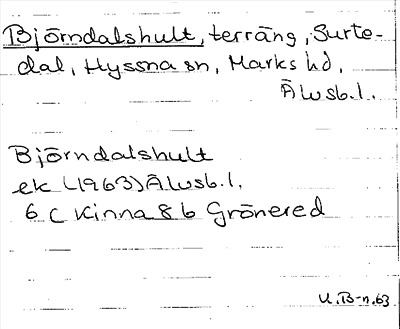 Björndalshult, terräng, Surte-
dal, Hyssna sn, Marks hd,
Älvsb.l.
Björndalshult
ek (1963) Älvsb.l.
6 C Kinna 8 b Grönered
U.B-n.63